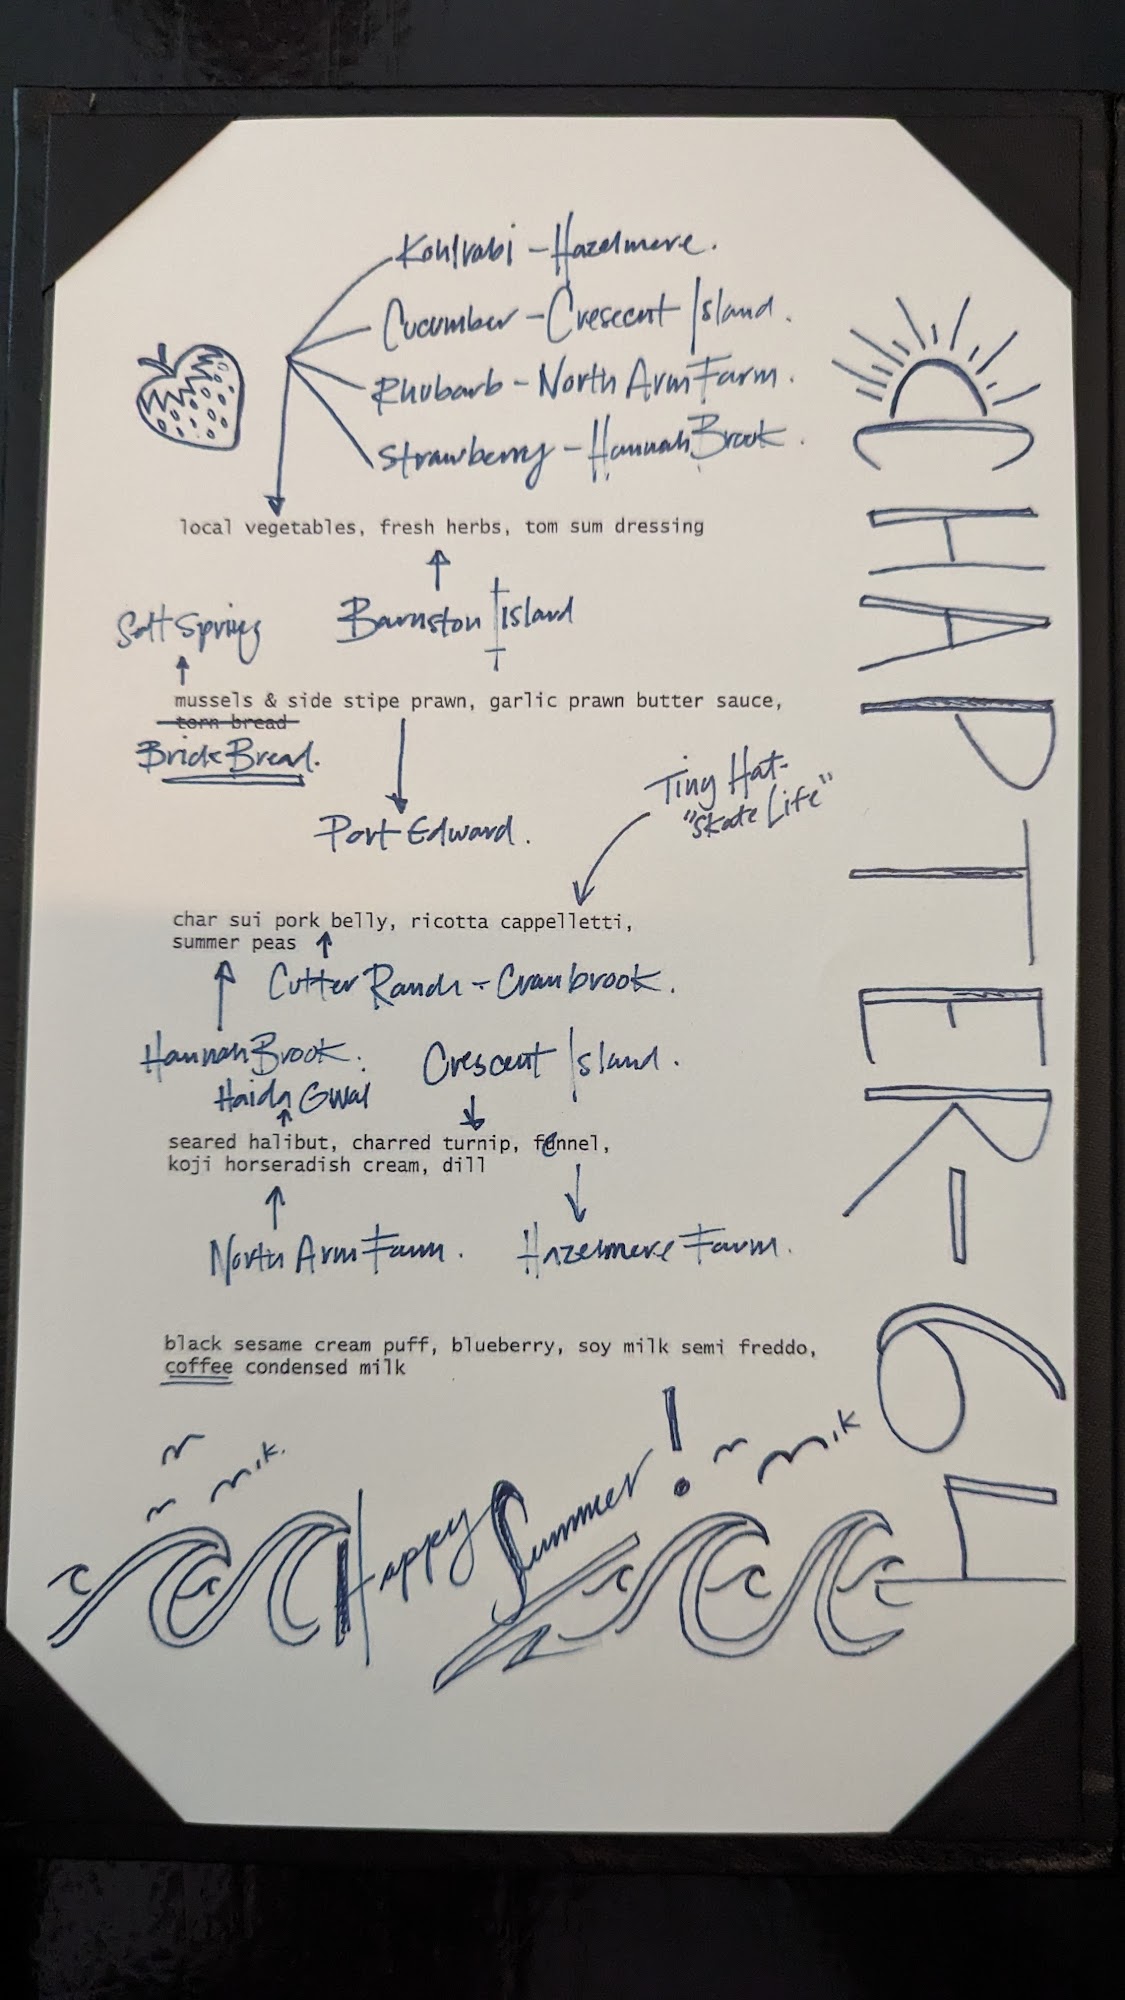 Kohlrabi - Hazelmere.
Cucumber - Crescent Island.
Rhubarb - North Arm Farm.
Strawberry - Hannah Brook.
local vegetables, fresh herbs, tom sum dressing
Barnston Island
Salt Spring
mussels & side stipe prawn, garlic prawn butter sauce,
torn bread
Brick Bread.
Port Edward.
Tiny Hat-
"Skate Life"
char sui pork belly, ricotta cappelletti,
summer peas
Cutter Ranch - Cranbrook.
Hannah Brook.
Crescent Island.
Haida Gwai
seared halibut, charred turnip, fennel,
koji horseradish cream, dill
North Arm Farm.
Hazelmere Farm.
black sesame cream puff, blueberry, soy milk semi freddo,
coffee condensed milk
Happy Summer!
CHAPTER-61